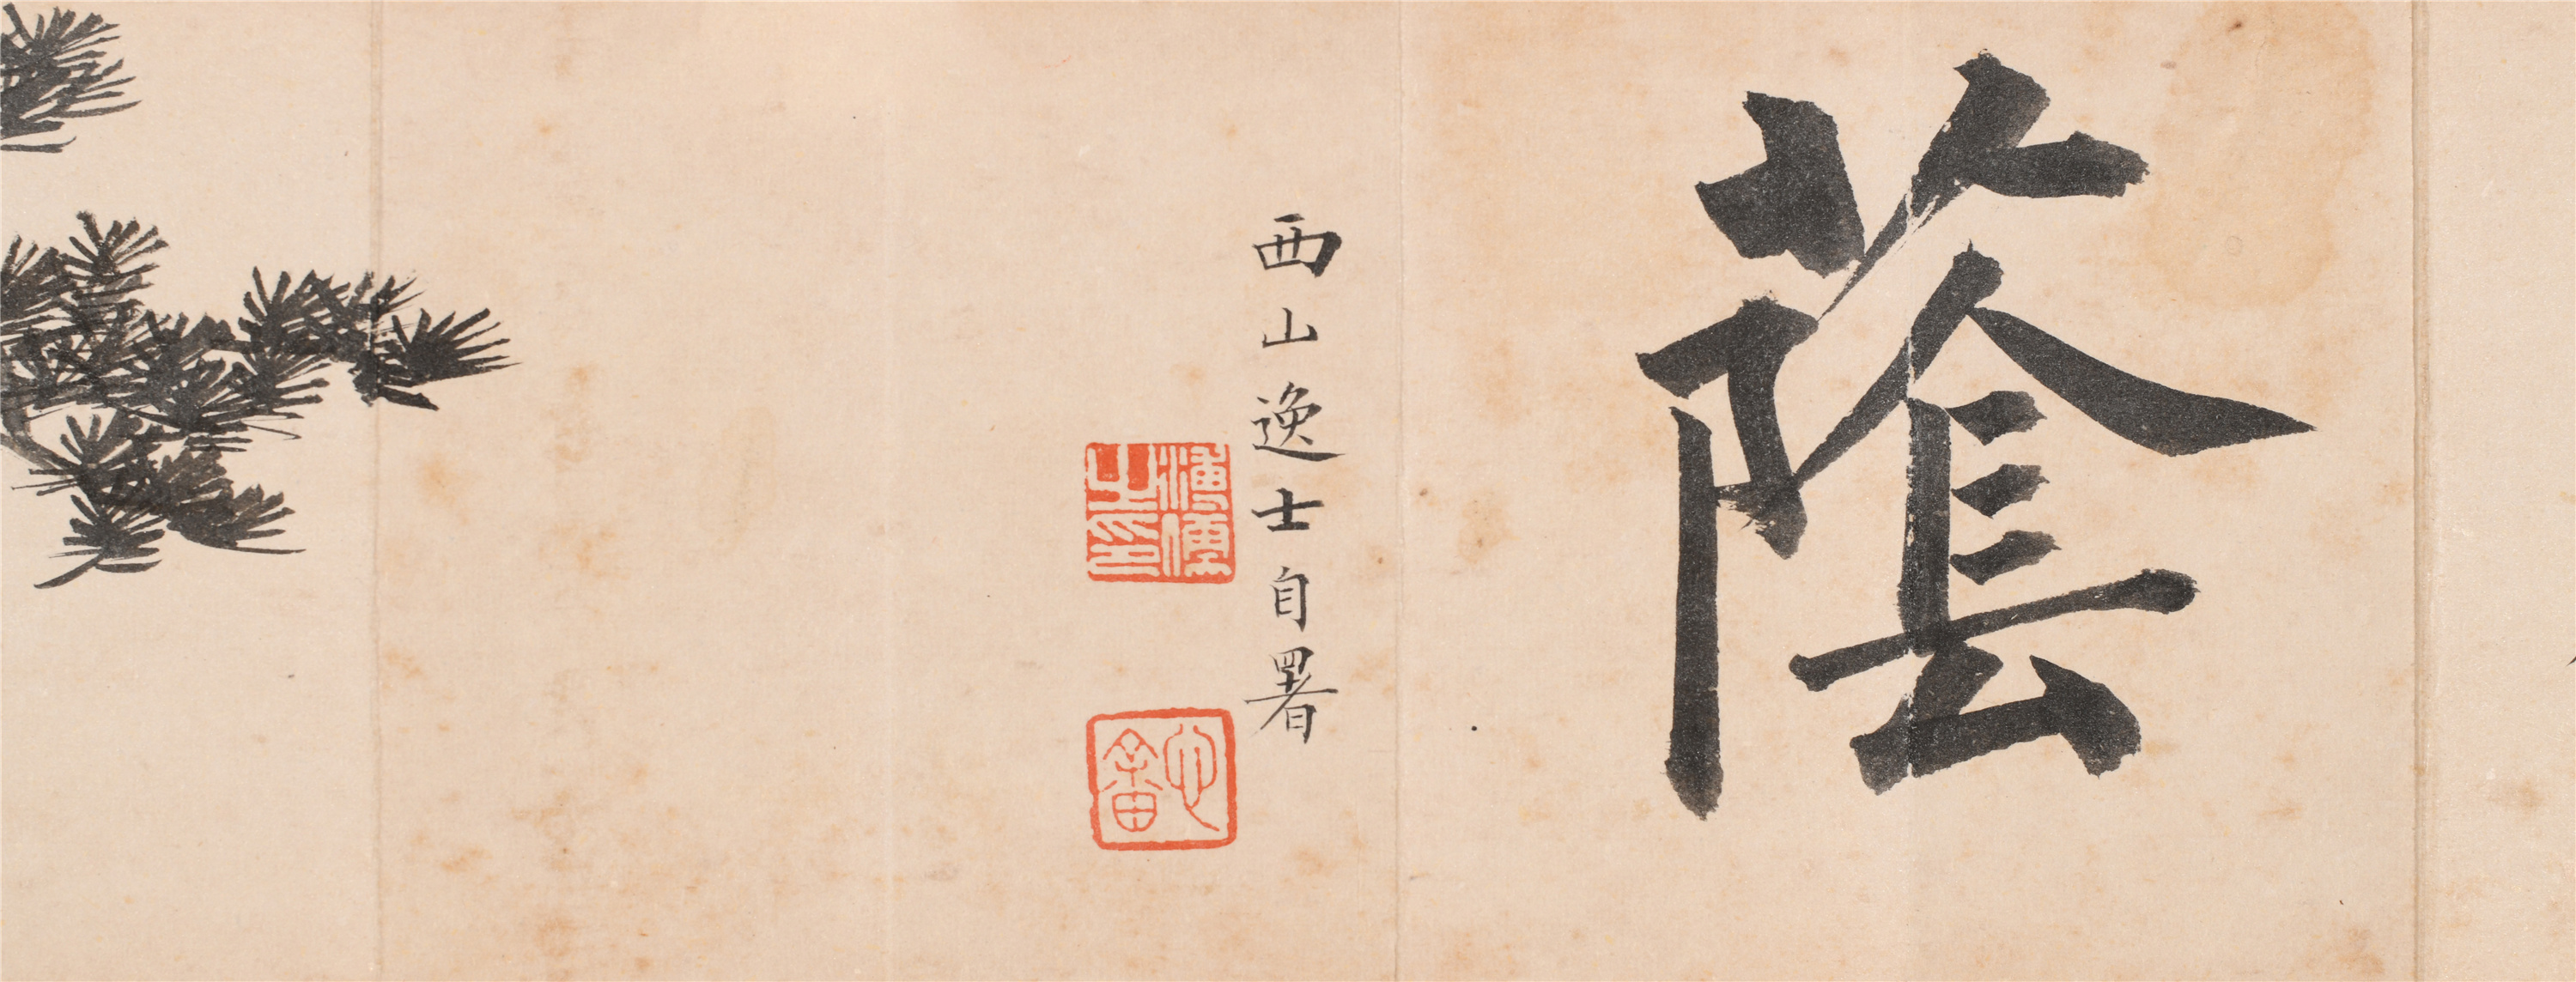 蔭
西山逸士自署
溥儒之印
心畬